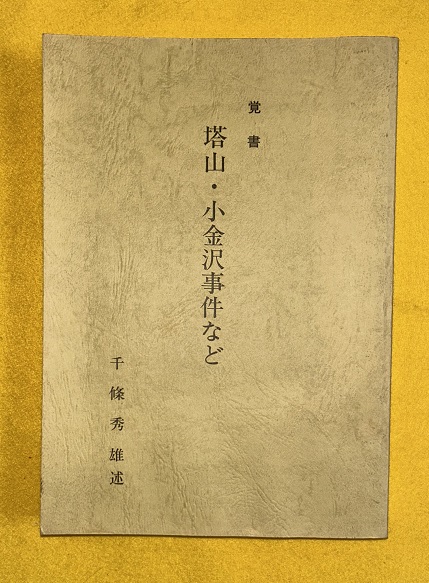 覚書
塔山・小金沢事件など
千條秀雄述